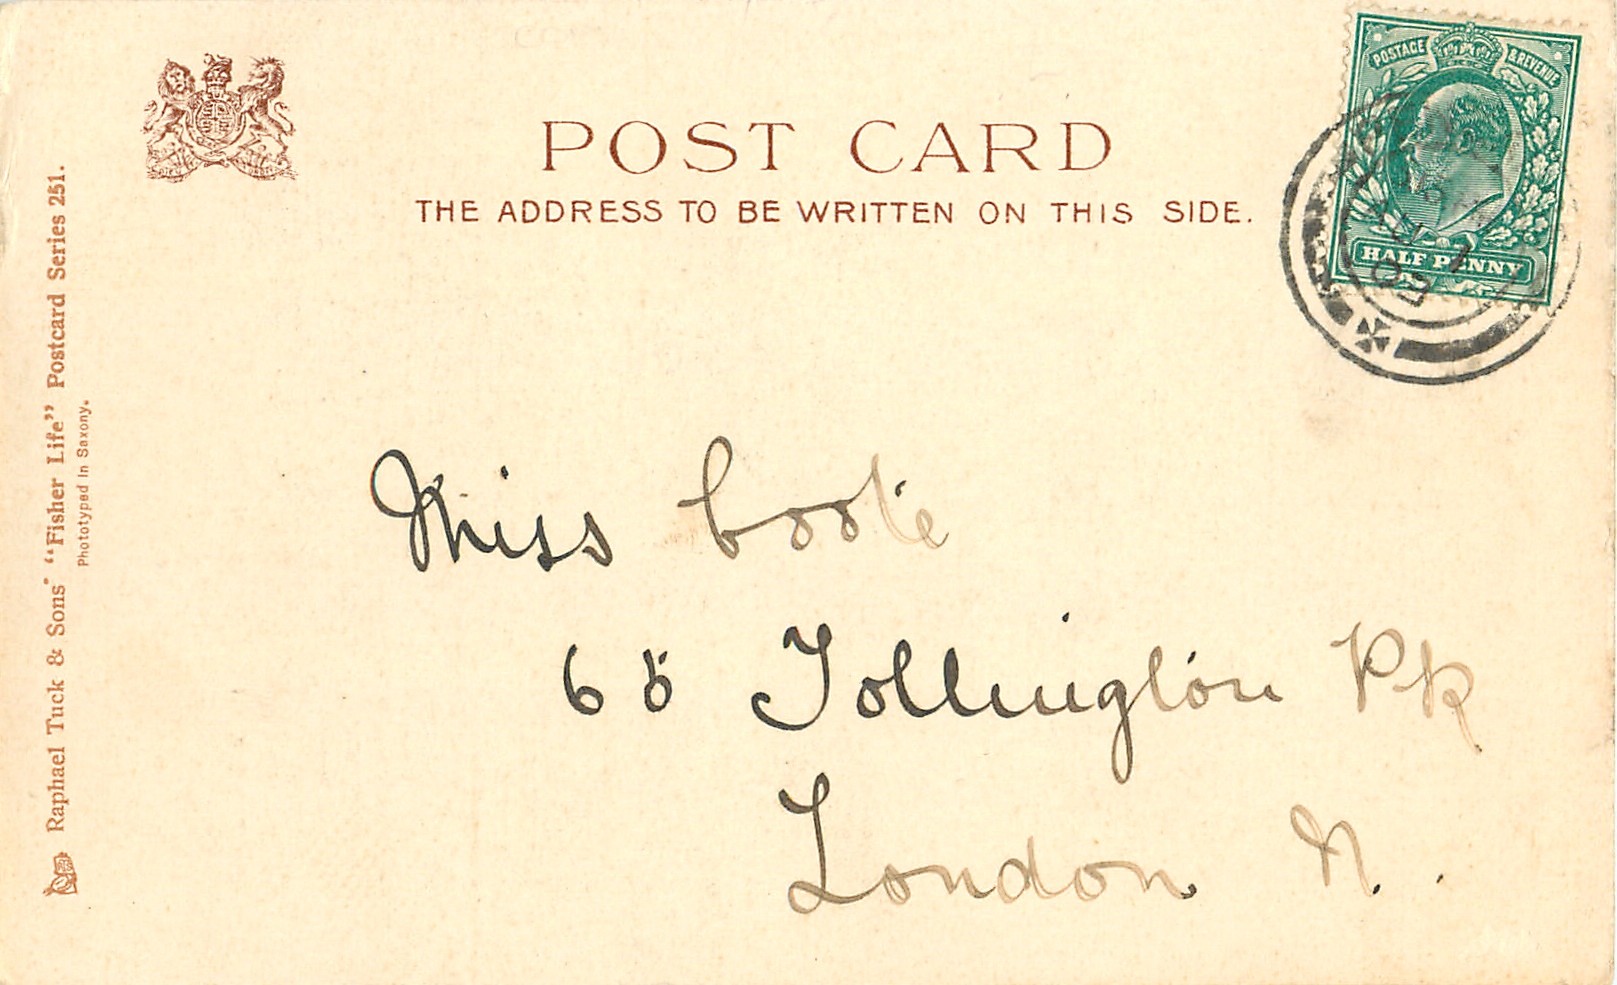 POST CARD
THE ADDRESS TO BE WRITTEN ON THIS SIDE.
POSTAGE & REVENUE
HALF PENNY
Raphael Tuck & Sons' "Fisher Life" Postcard Series 251.
Phototyped in Saxony.
Miss Coote
68 Tollington Pk
London N.